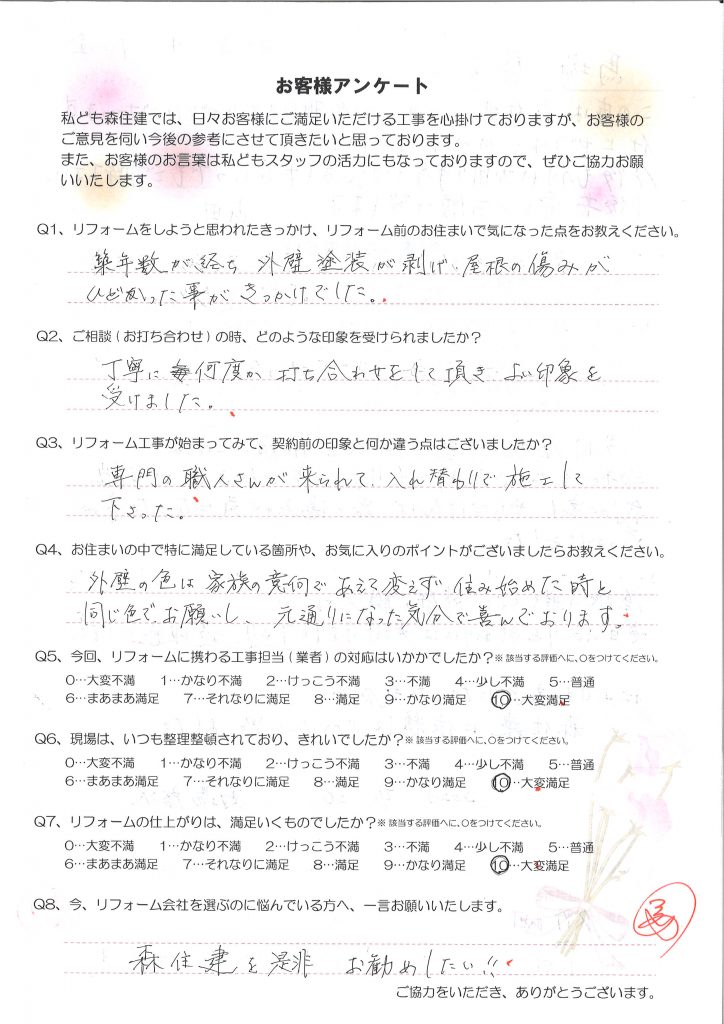 お客様アンケート
私ども森住建では、日々お客様にご満足いただける工事を心掛けておりますが、お客様の
ご意見を伺い今後の参考にさせて頂きたいと思っております。
また、お客様のお言葉は私どもスタッフの活力にもなっておりますので、ぜひご協力お願
いいたします。
Q1、リフォームをしようと思われたきっかけ、リフォーム前のお住まいで気になった点をお教えください。
築年数が経ち 外壁塗装が剥げ、屋根の傷みが
ひどかった事がきっかけでした。
Q2、ご相談(お打ち合わせ)の時、どのような印象を受けられましたか?
丁寧に 何度か 打ち合わせをして頂き よい印象を
受けました。
Q3、リフォーム工事が始まってみて、契約前の印象と何か違う点はございましたか?
専門の職人さんが来られて、入れ替わりで施工して
下さった。
Q4、お住まいの中で特に満足している箇所や、お気に入りのポイントがございましたらお教えください。
外壁の色は家族の意向であえて変えず 住み始めた時と
同じ色でお願いし、元通りになった気分で喜んでおります。
Q5、今回、リフォームに携わる工事担当(業者)の対応はいかかでしたか?※該当する評価へに、○をつけてください。
0…大変不満 1…かなり不満 2…けっこう不満 3…不満 4…少し不満 5…普通
6…まあまあ満足 7…それなりに満足 8…満足 9…かなり満足 10…大変満足
Q6、現場は、いつも整理整頓されており、きれいでしたか?※該当する評価へに、○をつけてください。
0…大変不満 1…かなり不満 2…けっこう不満 3…不満 4…少し不満 5…普通
6…まあまあ満足 7…それなりに満足 8…満足 9…かなり満足 10…大変満足
Q7、リフォームの仕上がりは、満足いくものでしたか?※該当する評価へに、○をつけてください。
0…大変不満 1…かなり不満 2…けっこう不満 3…不満 4…少し不満 5…普通
6…まあまあ満足 7…それなりに満足 8…満足 9…かなり満足 10…大変満足
Q8、今、リフォーム会社を選ぶのに悩んでいる方へ、一言お願いいたします。
森住建を是非 お勧めしたい!!
ご協力をいただき、ありがとうございます。